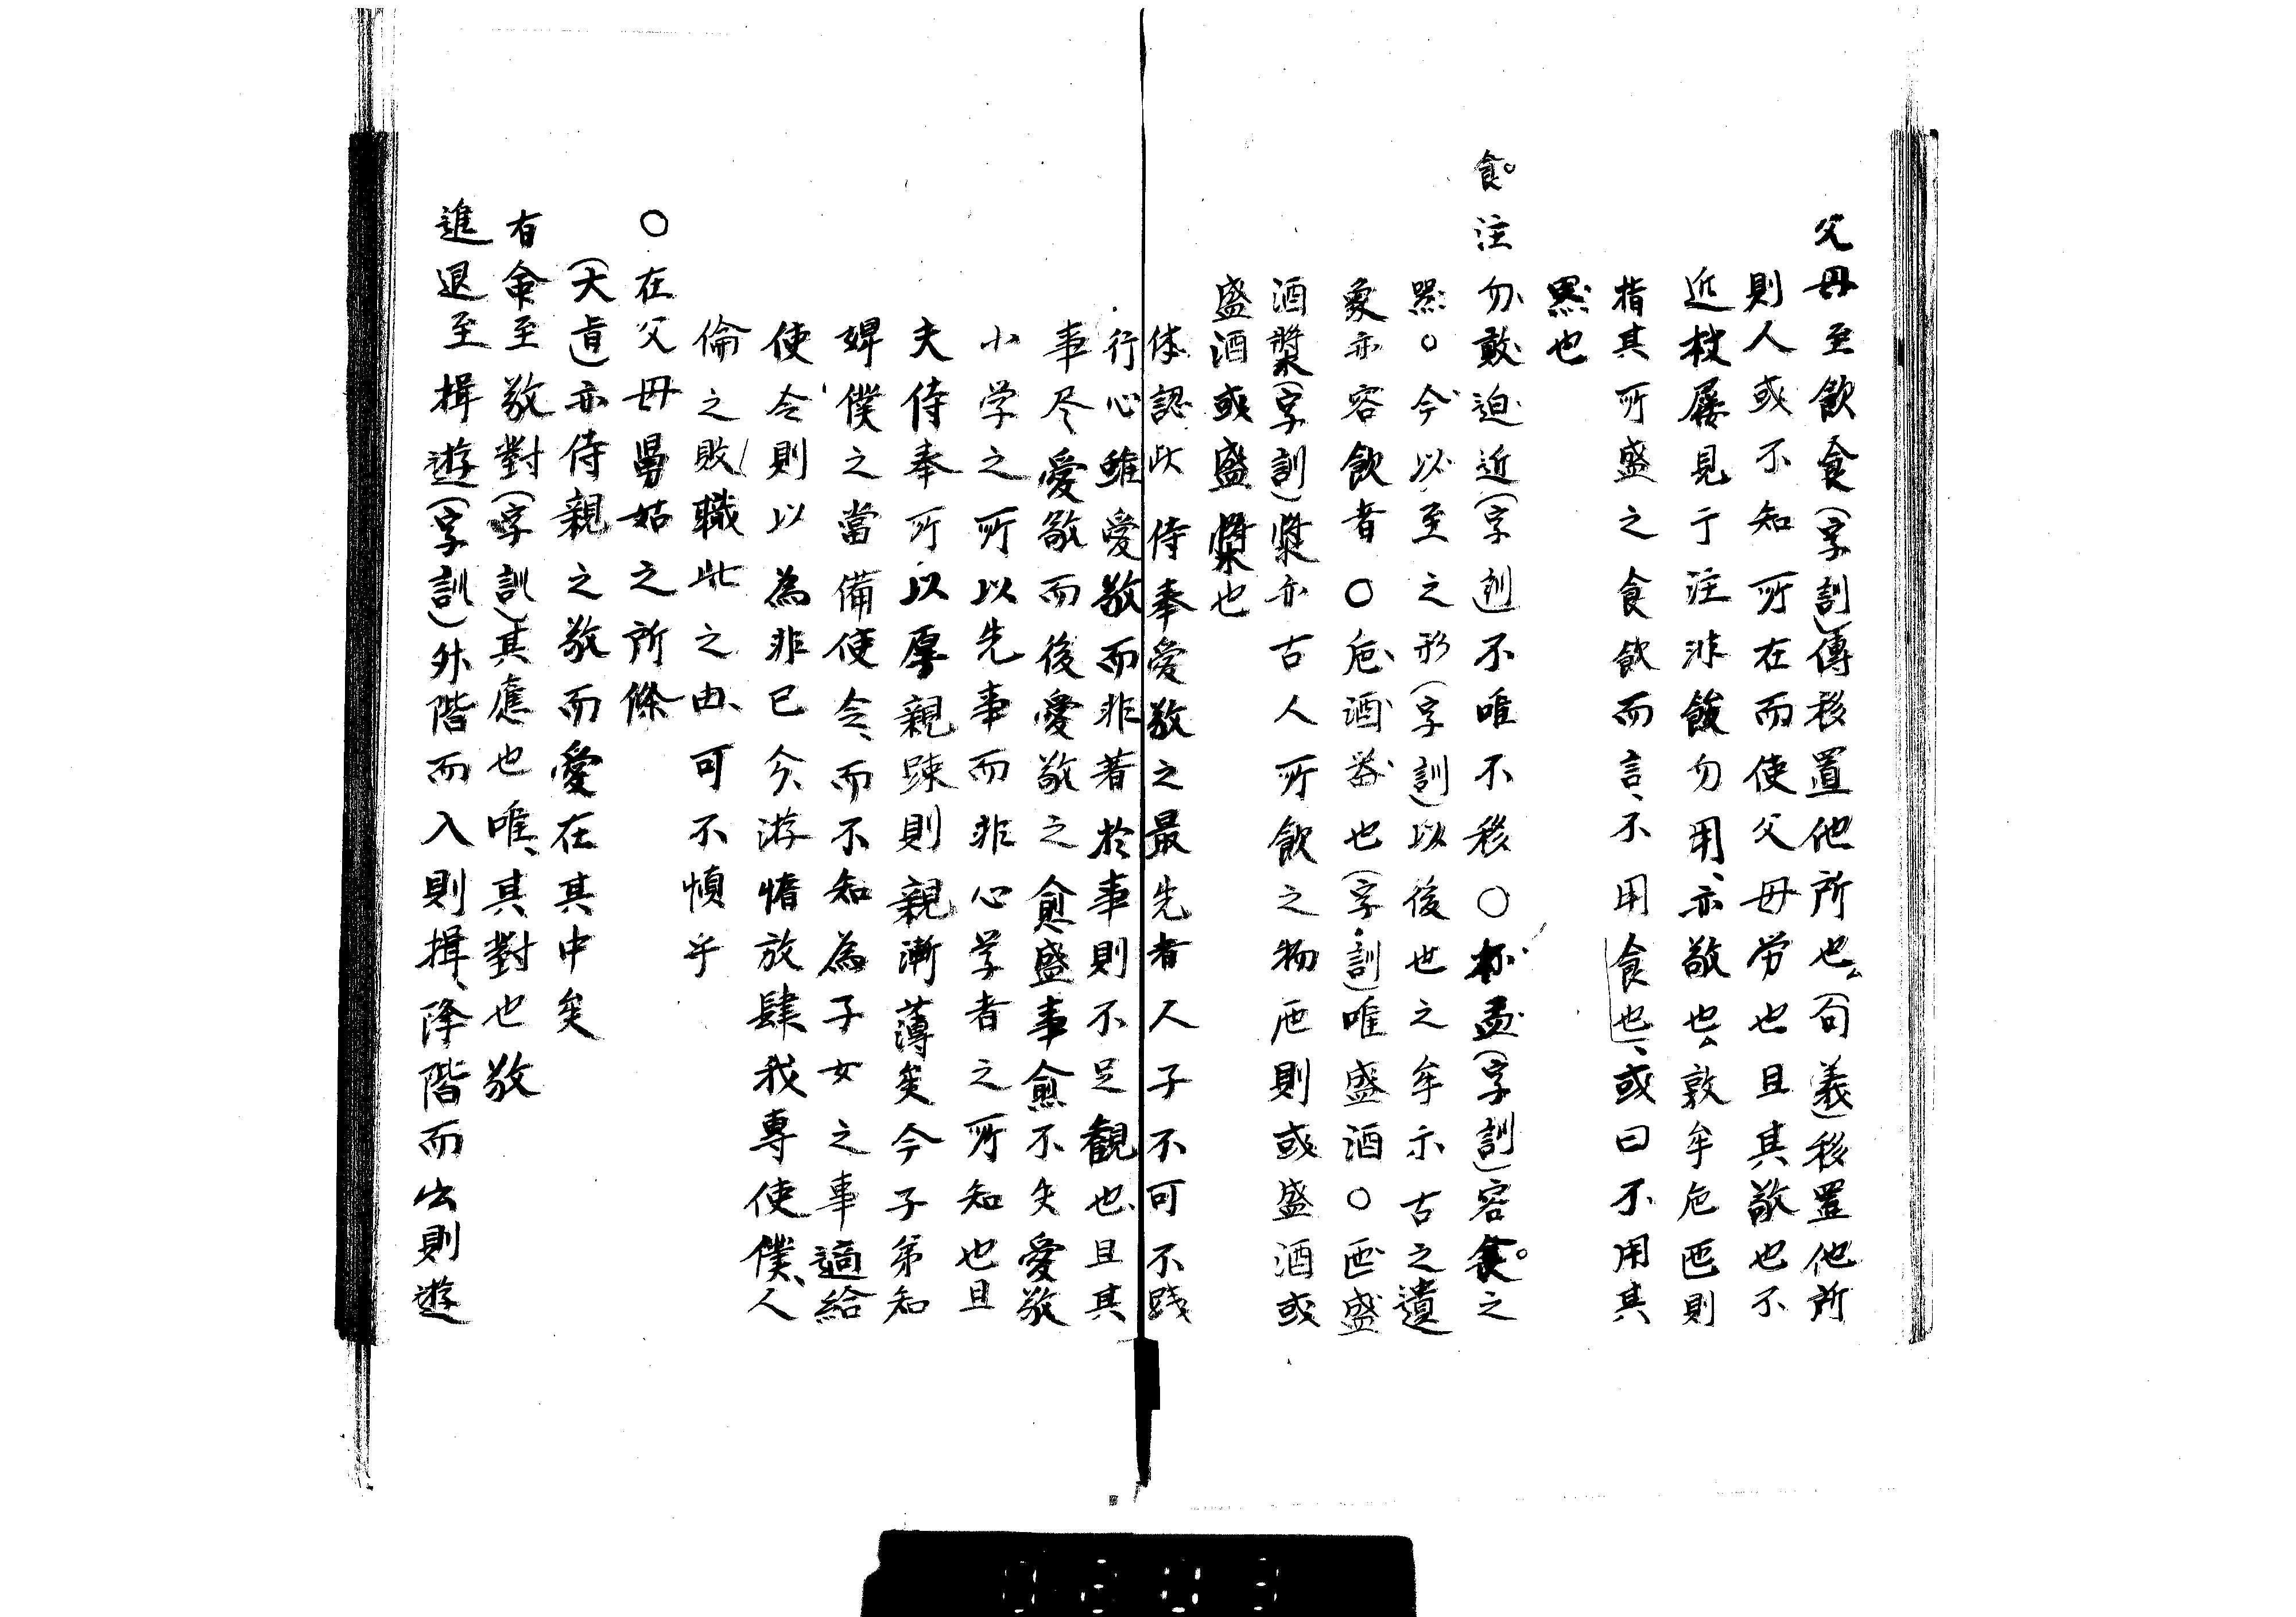 父母至飲食(字訓)傳移置他所也(句義)移置他所
則人或不知所在而使父母労也且其敬也不
近杖屨見于注非餕勿用示敬也敦牟卮匜則
指其所盛之食飲而言不用食也或曰不用其
器也
食
注勿敢迫近(字訓)不唯不移○杯盂(字訓)容食之
器○今以至之形(字訓)以後世之牟示古之遺
象亦容飲者○卮酒器也(字訓)唯盛酒○匜盛
酒漿(字訓)漿亦古人所飲之物匜則或盛酒或
盛酒或盛漿也
体認此侍奉愛敬之最先者人子不可不践
行心雖愛敬而非著於事則不足観也且其
事尽愛敬而後愛敬之愈盛事愈不失愛敬
小学之所以先事而非心学者之所知也且
夫侍奉所以厚親踈則親漸薄矣今子弟知
婢僕之當備使令而不知為子女之事適給
使令則以為非已今游惰放肆我専使僕人
倫之敗職此之由可不慎乎
○在父母舅姑之所條
(大旨)亦侍親之敬而愛在其中矣
有命至敬對(字訓)其應也唯其對也敬
進退至揖遊(字訓)外階而入則揖降階而出則遊